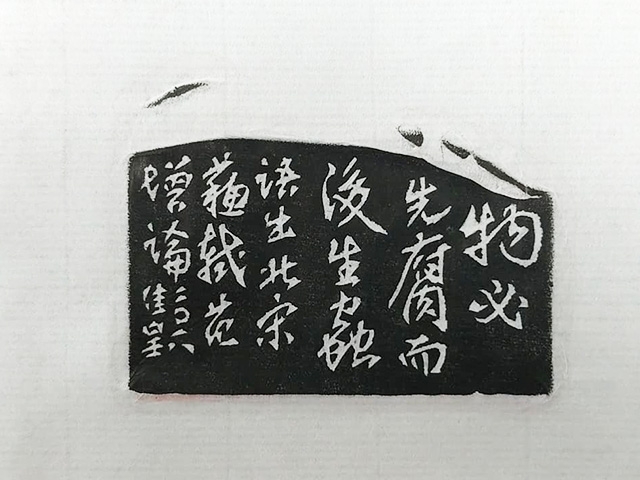 物必
先腐而
後生蟲
語出北宋
蘇軾范
增論二〇一六
佳皇